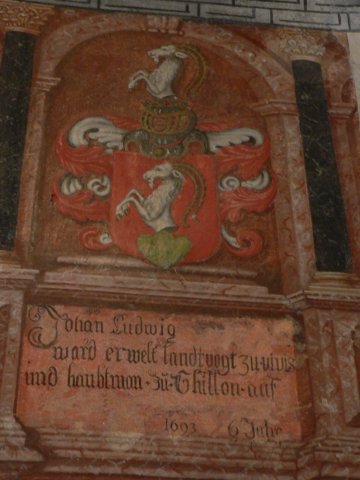 Johan Ludwig
ward erwelt landtvogt zu vivis
und haubtmon · Zu · Chillon · auf
1693 6 Jahr